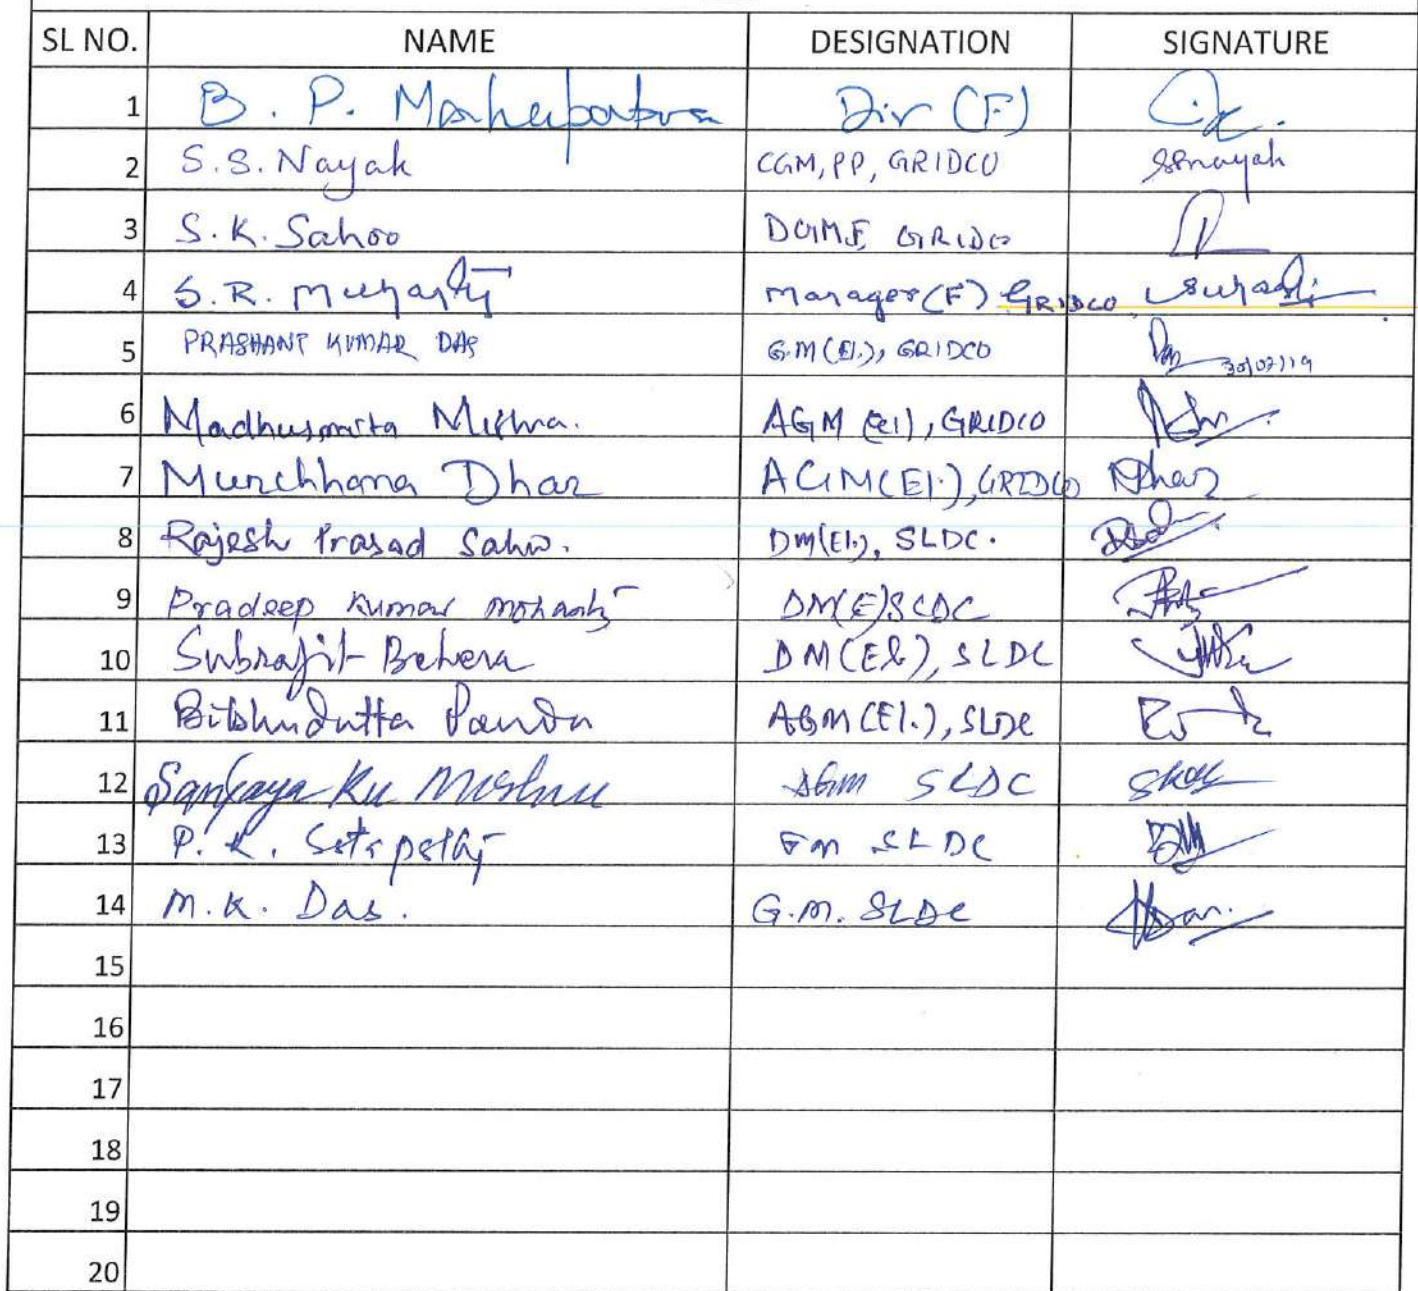 SL NO. NAME DESIGNATION SIGNATURE
1 B. P. Mohapatra Dir (F)
2 S.S. Nayak CGM, PP, GRIDCO SSnayak
3 S.K. Sahoo DGMF, GRIDCO
4 S.R. Mohanty Manager(F) GRIDCO
5 PRASHANT KUMAR DAS G.M(El.), GRIDCO Das 30/07/19
6 Madhusmita Mishra. AGM (El), GRIDCO
7 Murchhana Dhar AGM(El.), GRIDCO Dhar
8 Rajesh Prasad Sahoo. DM(El.), SLDC.
9 Pradeep Kumar Mohanty DM(E) SLDC
10 Subrajit Behera DM(El.), SLDC
11 Bibhudutta Panda AGM(El.), SLDC
12 Sanjaya Ku Mishra AGM SLDC
13 P. K. Satpathy GM SLDC
14 M.K. Das. G.M. SLDC
15
16
17
18
19
20